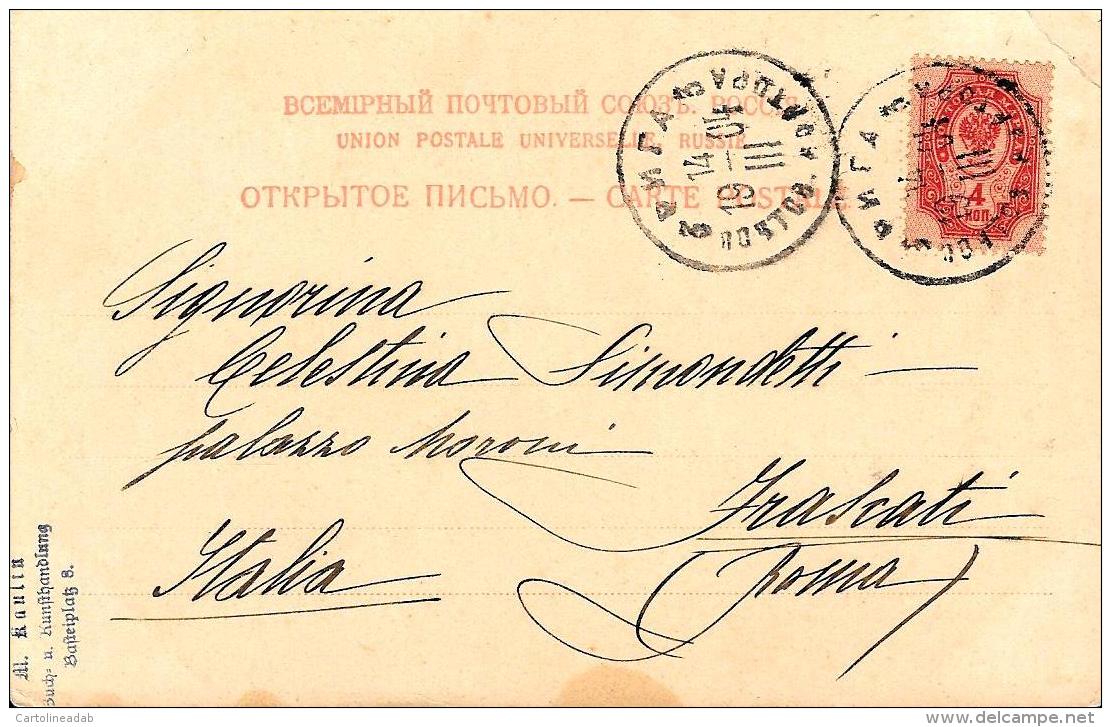 ВСЕМІРНЫЙ ПОЧТОВЫЙ СОЮЗЪ. РОССІЯ
UNION POSTALE UNIVERSELLE, RUSSIE
ОТКРЫТОЕ ПИСЬМО. — CARTE POSTALE
РИГА
14
III
04
4
КОП.
Signorina
Celestina Simondetti —
palazzo Moroni
Frascati
Italia
(Roma)
M. Kaulin
Buch- u. Kunsthandlung
Basteiplatz 8.
© Cartolineadab